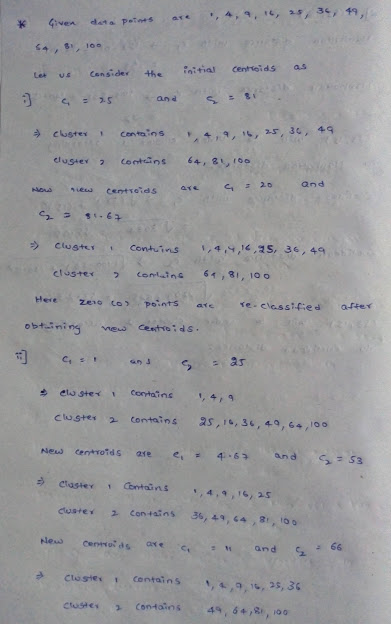 * Given data points are 1, 4, 9, 16, 25, 36, 49,
64, 81, 100.
Let us consider the initial centroids as
i] C₁ = 25 and C₂ = 81.
⇒ cluster 1 contains 1, 4, 9, 16, 25, 36, 49
cluster 2 contains 64, 81, 100
Now new centroids are C₁ = 20 and
C₂ = 81.67
⇒ cluster 1 contains 1, 4, 9, 16, 25, 36, 49
cluster 2 contains 64, 81, 100
Here zero (0) points are re-classified after
obtaining new centroids.
ii] C₁ = 1 and C₂ = 25
⇒ cluster 1 contains 1, 4, 9
cluster 2 contains 25, 16, 36, 49, 64, 100
New centroids are C₁ = 4.67 and C₂ = 53
⇒ cluster 1 contains 1, 4, 9, 16, 25
cluster 2 contains 36, 49, 64, 81, 100
New centroids are C₁ = 11 and C₂ = 66
⇒ cluster 1 contains 1, 4, 9, 16, 25, 36
cluster 2 contains 49, 64, 81, 100